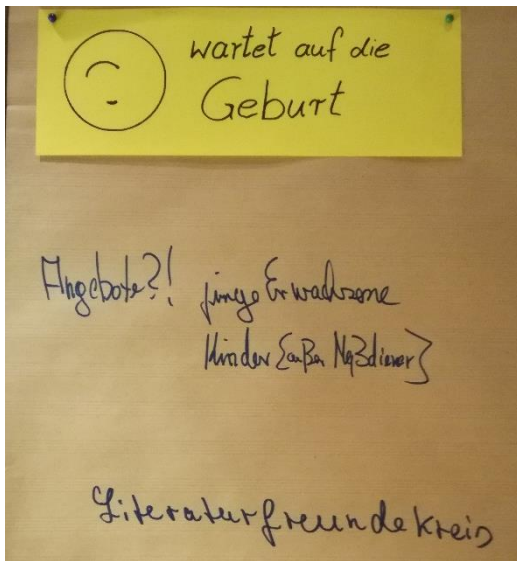 wartet auf die
Geburt
Angebote?! junge Erwachsene
Kinder {außer Meßdiener}
Literaturfreundekreis